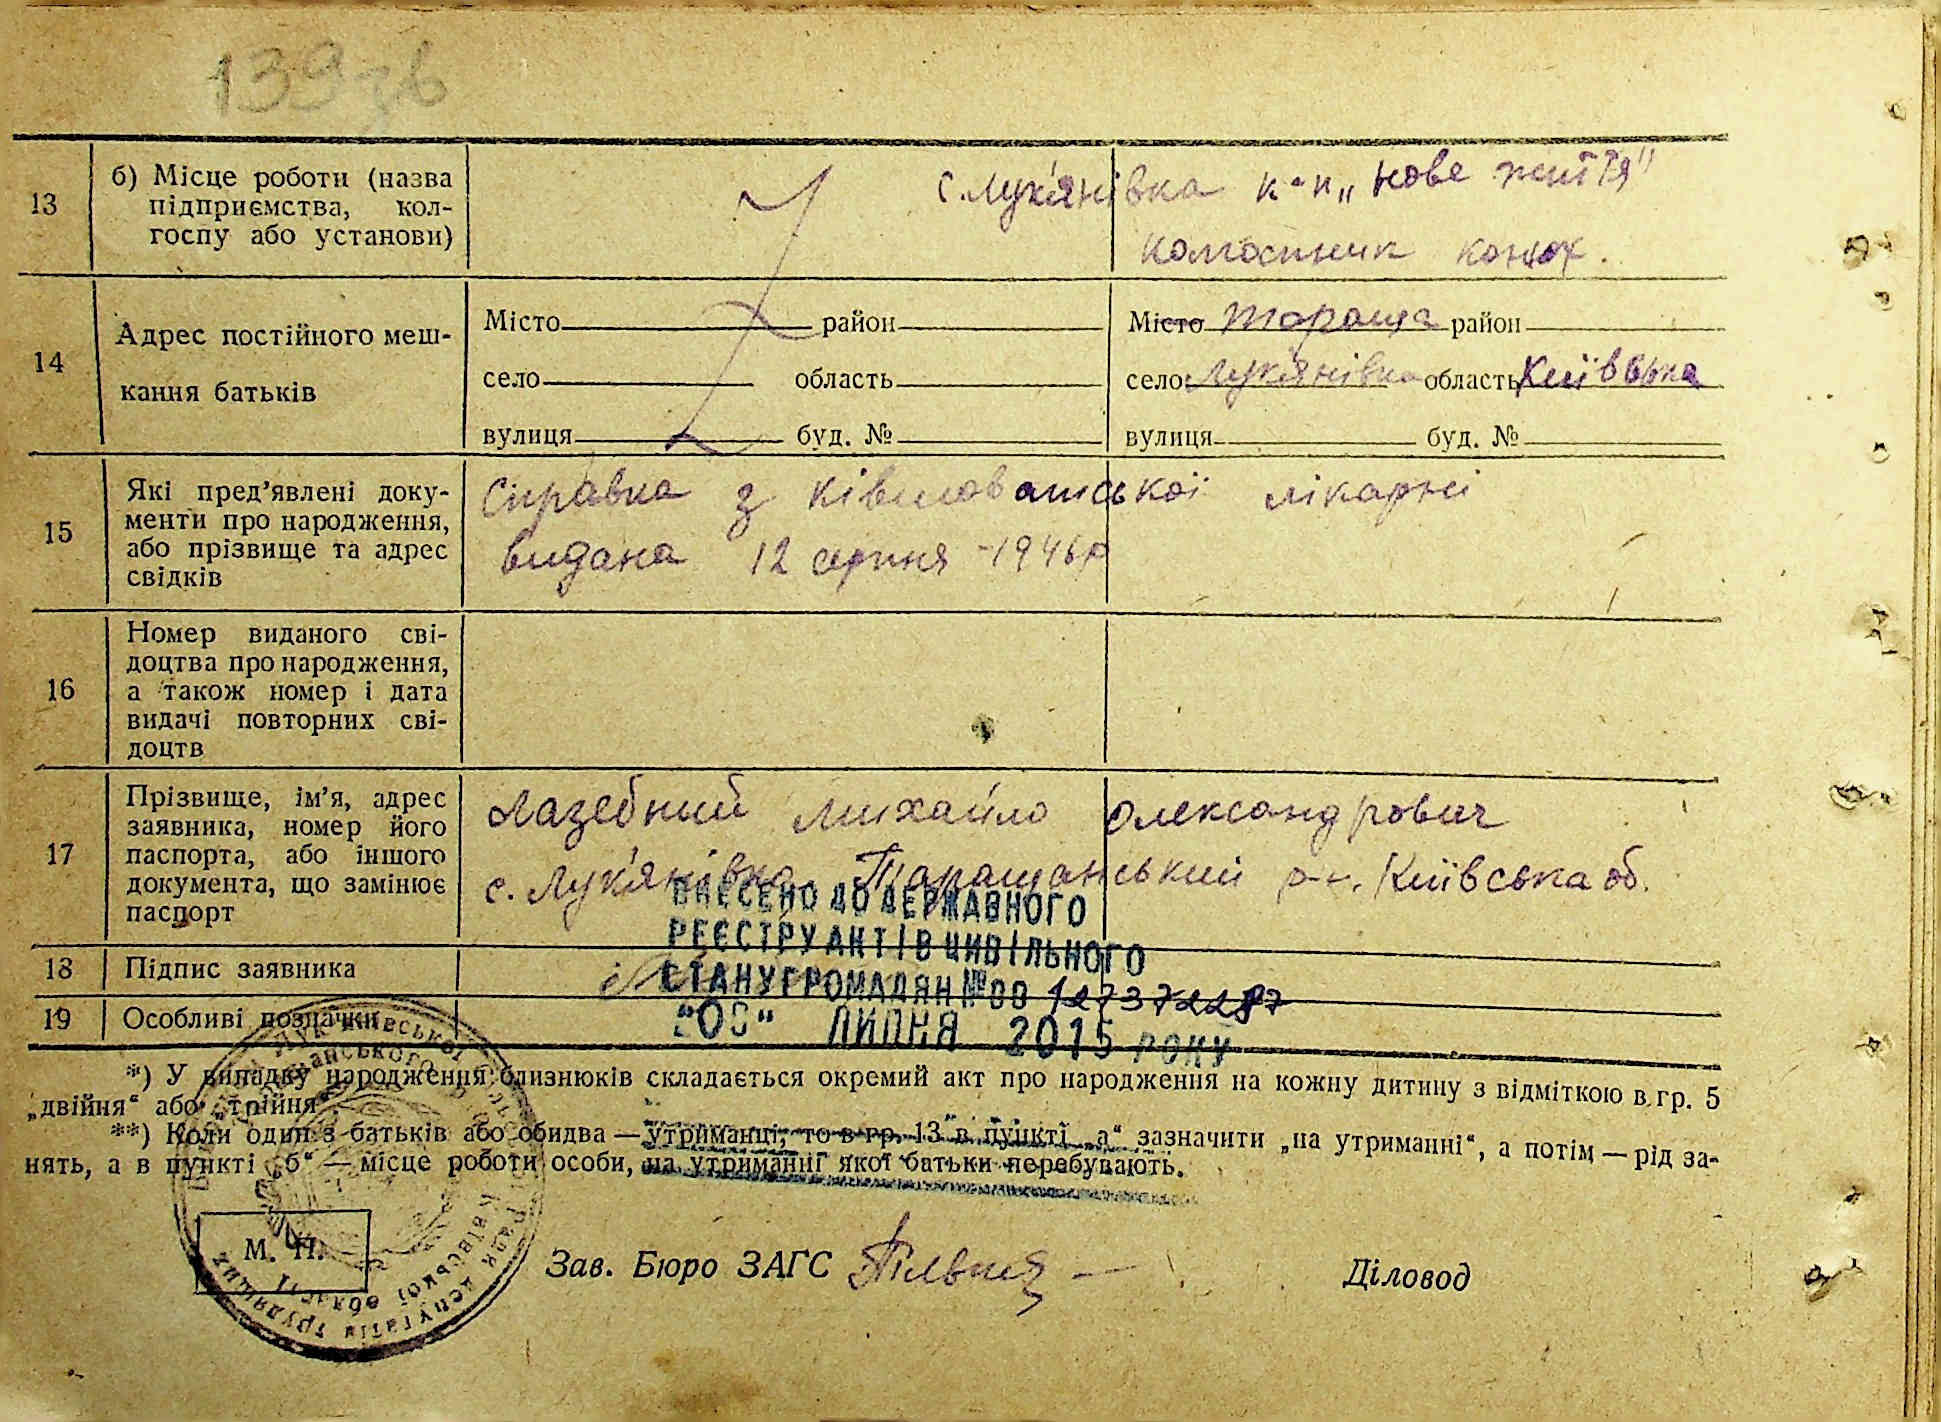 139 зв
13 б) Місце роботи (назва с. Лук'янівка к-п „нове життя"
підприємства, кол-
госпу або установи) колгоспник конюх.
14 Адрес постійного меш-
кання батьків
Місто район Місто Тараща район
село область село Лук'янівка область Київська
вулиця буд. № вулиця буд. №
15 Які пред'явлені доку-
менти про народження,
або прізвище та адрес
свідків
Справка з ківшоватської лікарні
видана 12 серпня -1946р
16 Номер виданого сві-
доцтва про народження,
а також номер і дата
видачі повторних сві-
доцтв
17 Прізвище, ім'я, адрес
заявника, номер його
паспорта, або іншого
документа, що замінює
паспорт
Лазебний Михайло Олександрович
с. Лук'янівка Таращанський р-н. Київська об.
18 Підпис заявника
19 Особливі позначки
ВНЕСЕНО ДО ДЕРЖАВНОГО
РЕЄСТРУ АКТІВ ЦИВІЛЬНОГО
СТАНУ ГРОМАДЯН №00
ЛИПНЯ 2015 РОКУ
*) У випадку народження близнюків складається окремий акт про народження на кожну дитину з відміткою в гр. 5
„двійня“ або „трійня“.
**) Коли один з батьків або обидва — утриманці, то в гр. 13 в пункті „а“ зазначити „на утриманні“, а потім — рід за-
нять, а в пункті „б“ — місце роботи особи, на утриманні якої батьки перебувають.
М. П.
Зав. Бюро ЗАГС Діловод